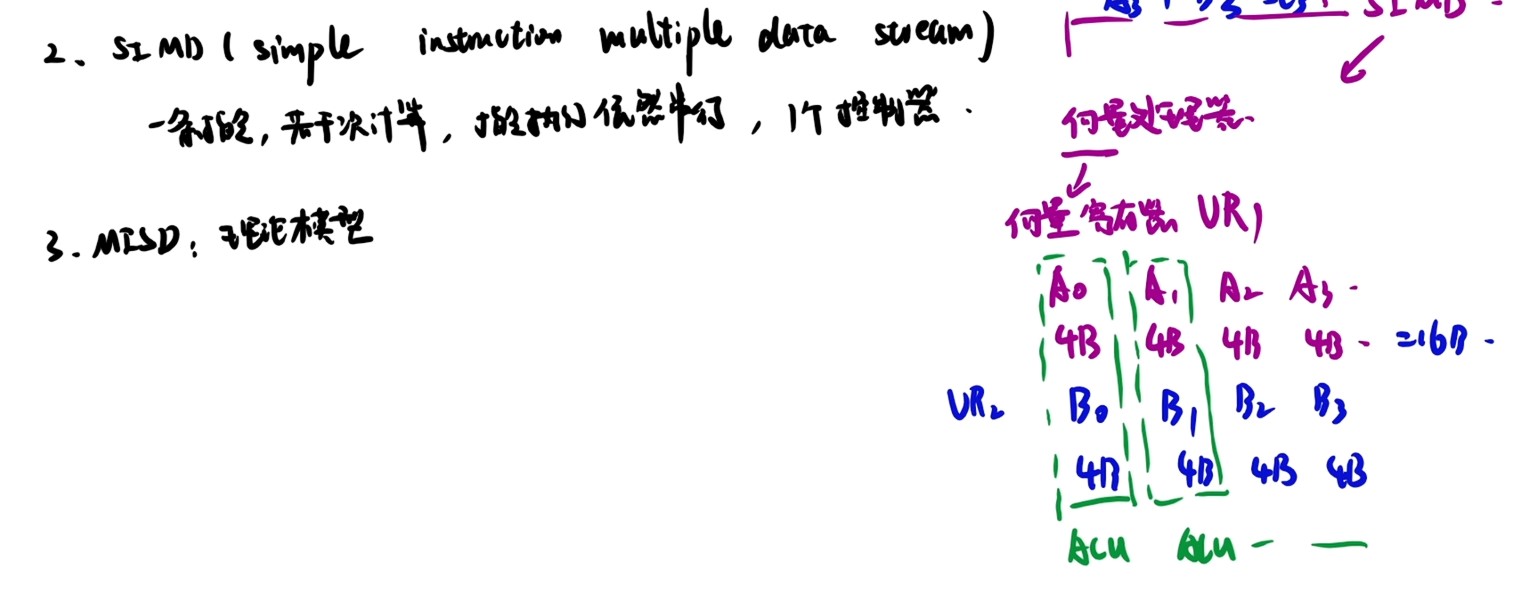 2、SIMD ( simple instruction multiple data stream)
一条指令，若干次计算，指令执行依然串行，1个控制器．
3. MISD：理论模型
SIMD
向量处理器
向量寄存器 VR1
A0 A1 A2 A3
4B 4B 4B 4B =16B
VR2 B0 B1 B2 B3
4B 4B 4B 4B
ALU ALU - —